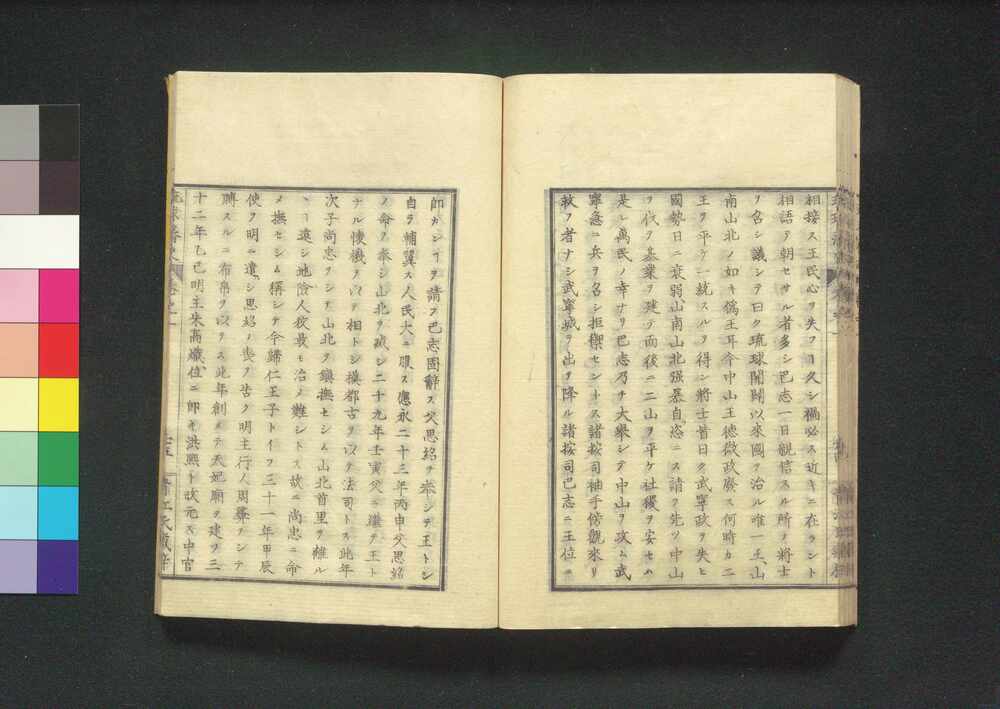 相接ス王民心ヲ失フヿ久シ禍必ス近キニ在ラント
相語ヲ朝セサル者多シ巴志一日親信スル所ノ將士
ヲ名シ議シテ曰ク琉球開闢以來國ヲ治ル唯一王、山
南山北ノ如キ僞王耳今中山王德微政廢ス何時カ二
王ヲ平ケ一統スルヲ得ン將士皆曰ク武寧政ヲ失ヒ
國勢日ニ衰弱山南山北强暴自恣ニス請フ先ツ中山
ヲ伐ヲ基業ヲ建テ而後ニ二山ヲ平ケ社稷ヲ安セハ
是レ萬民ノ幸ナリ巴志乃チ大擧シテ中山ヲ攻ム武
寧急ニ兵ヲ名シ拒禦セントス諸按司袖手傍觀來リ
救フ者ナシ武寧城ヲ出ヲ降ル諸按司巴志ニ王位ニ
卽カンヿヲ請フ巴志固辭ス父思紹ヲ奉シテ王トシ
自ラ輔翼ス人民大ニ服ス應永二十三年丙申父思紹
ノ命ヲ奉シ山北ヲ滅シ二十九年壬寅父ニ繼テ王ト
ナル懷機ヲ以テ相トシ模都古ヲ以テ法司トス此年
次子尚忠ヲシテ山北ヲ鎭撫セシム山北首里ヲ離ル
ヽ遠シ地險人狡最モ治メ難シトス故ニ尚忠ニ命
メ撫セシム稱シテ今歸仁王子トイフ三十一年甲辰
使ヲ明ニ遣シ思紹ノ喪ヲ告ク明主行人周彝ヲシテ
賻スルニ布帛ヲ以ヲス此年創メテ天妃廟ヲ建ツ三
十二年乙巳明主朱高熾位ニ卽キ洪熙ト改元ス中官